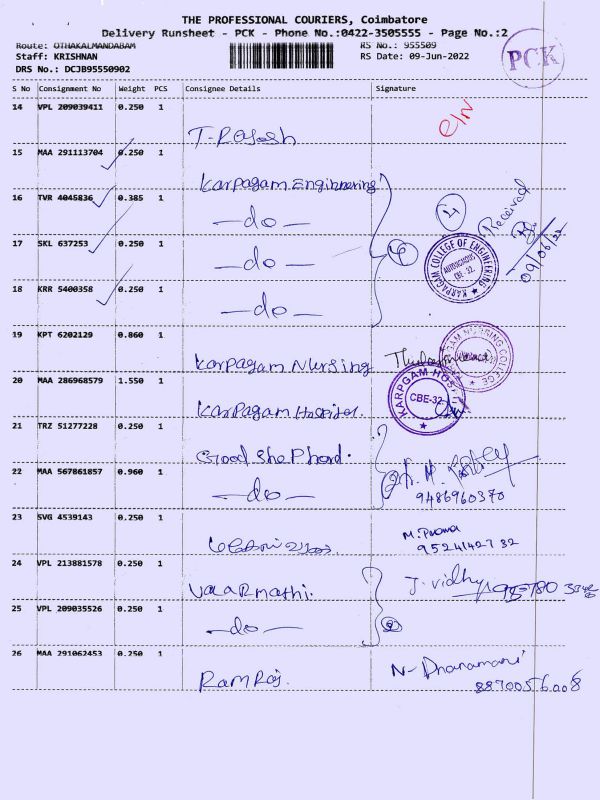 THE PROFESSIONAL COURIERS, Coimbatore
Delivery Runsheet - PCK - Phone No.:0422-3505555 - Page No.:2
Route: OTHAKALMANDABAM
RS No.: 955509
Staff: KRISHNAN
RS Date: 09-Jun-2022
DRS No.: DCJB95550902
PCK
S No Consignment No Weight PCS Consignee Details Signature
14 VPL 209039411 0.250 1
T. Rajesh
15 MAA 291113704 0.250 1
Karpagam Engineering
16 TVR 4045836 0.385 1
—do—
Received
09/06/22
17 SKL 637253 0.250 1
—do—
KARPAGAM COLLEGE OF ENGINEERING
AUTONOMOUS
CBE-32.
18 KRR 5400358 1 0.250
—do—
19 KPT 6202129 0.860 1
Karpagam Nursing
NURSING COLLEGE
20 MAA 286968579 1.550 1
Karpagam Hospital.
CBE-32
21 TRZ 51277228 0.250 1
Good Shepherd.
22 MAA 567861857 0.960 1
—do—
9486960370
23 SVG 4539143 0.250 1
9524142732
24 VPL 213881578 0.250 1
Valarmathi.
J. vidhy
25 VPL 209035526 0.250 1
—do—
26 MAA 291062453 0.250 1
Ramraj.
N- Dhanamani
8870056008